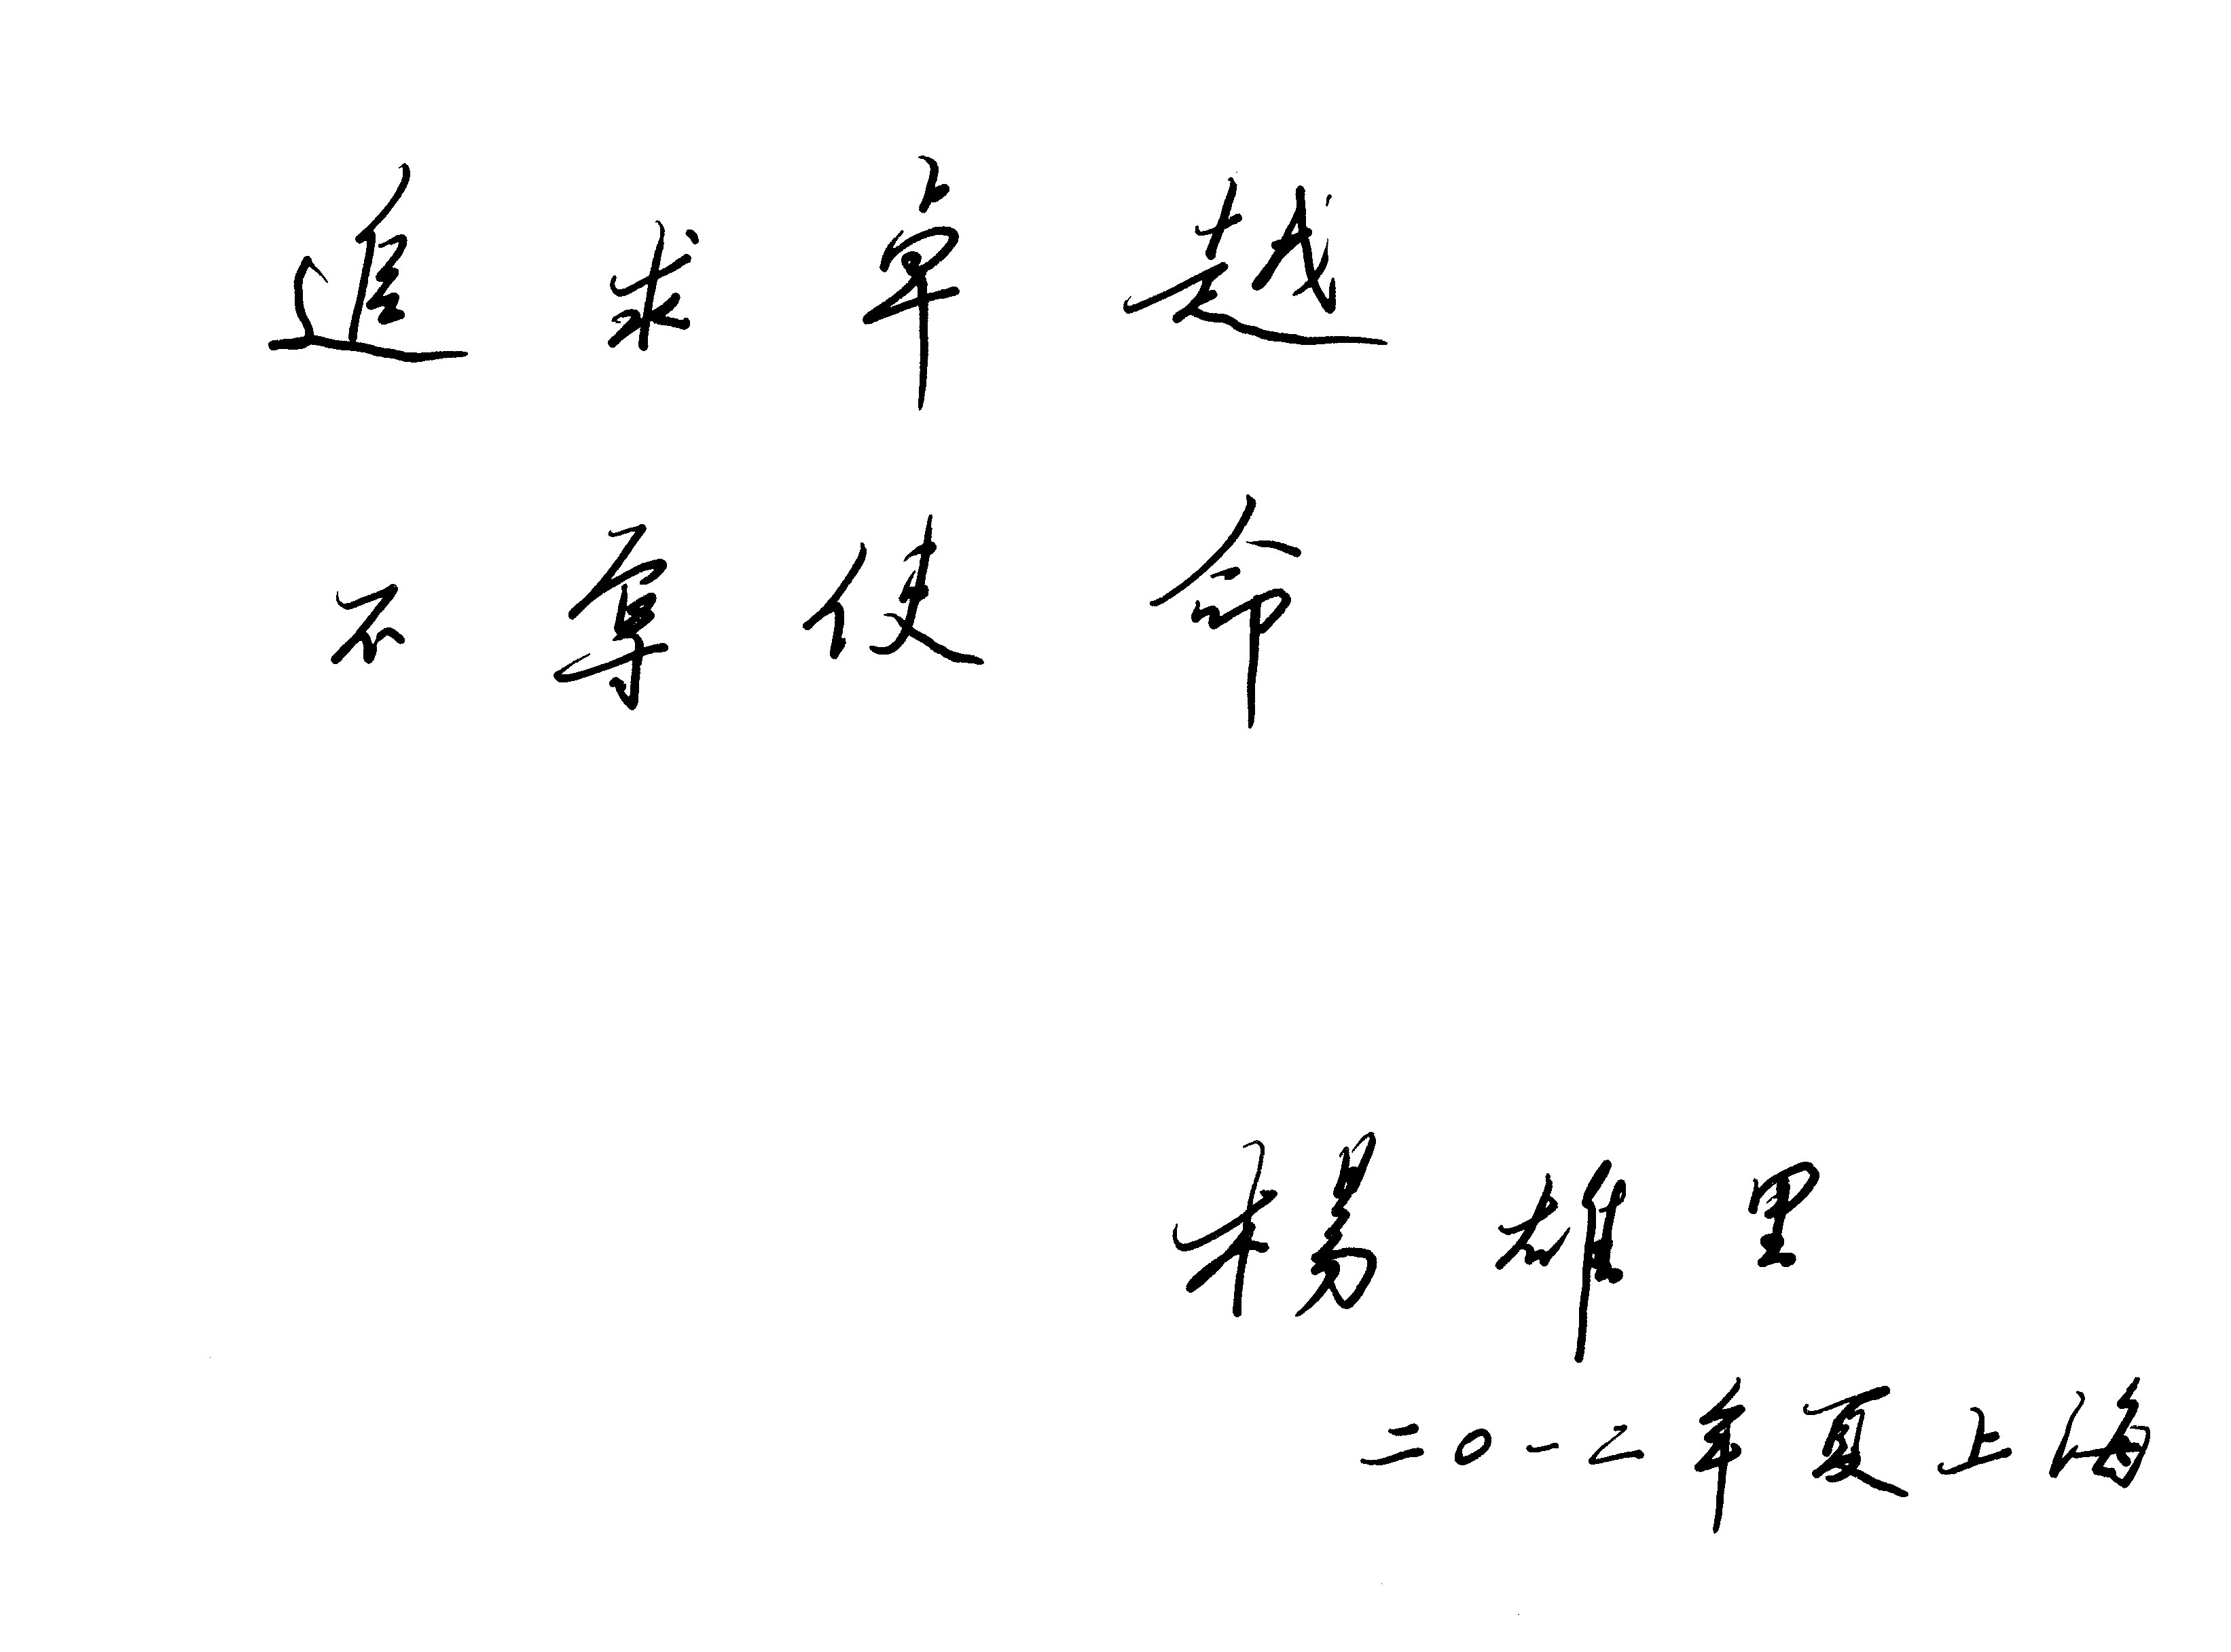 追求卓越
不辱使命
楊雄里
二〇一二年夏上海